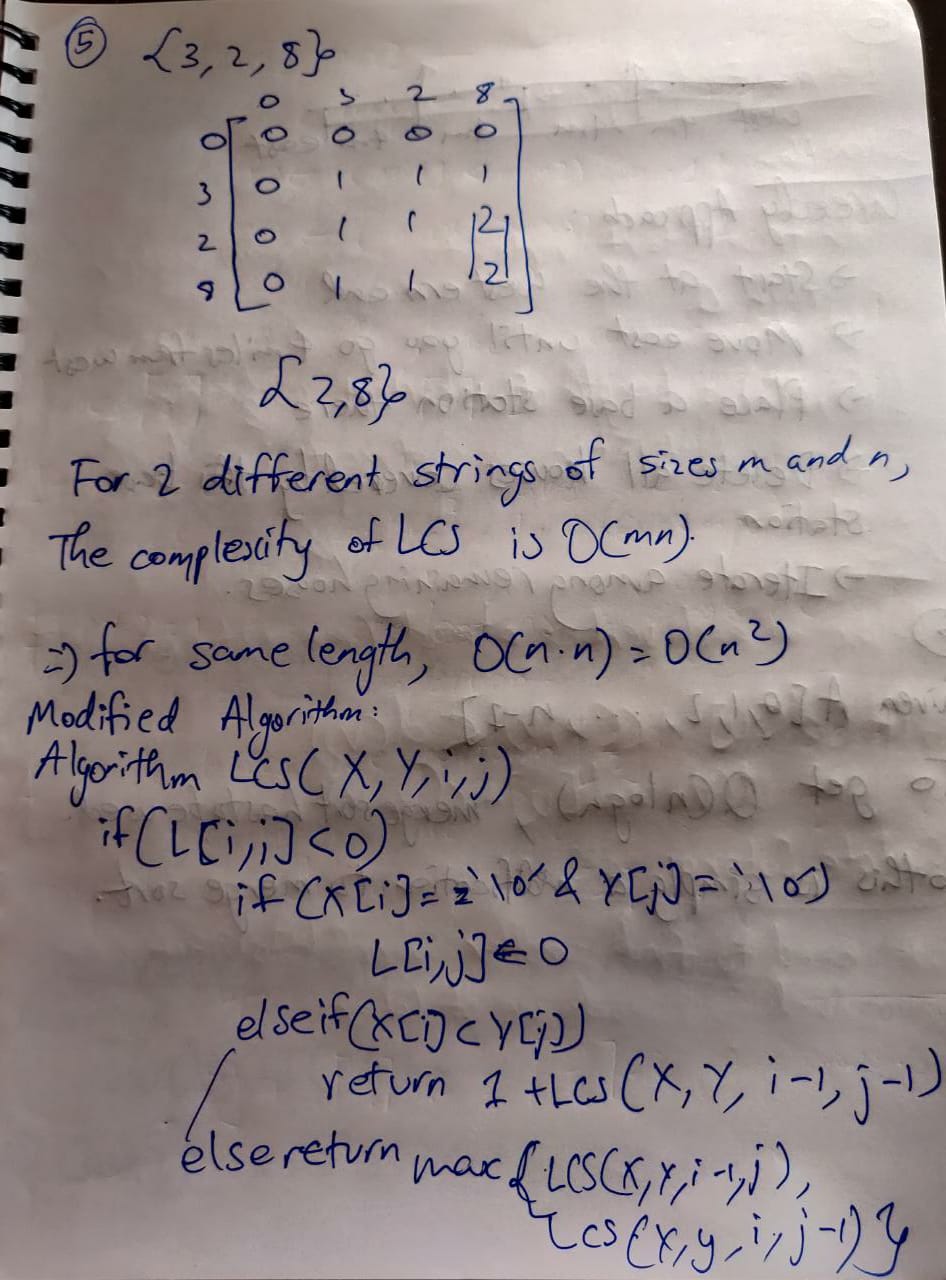 ⑤ {3, 2, 8}
0 3 2 8
0 0 0 0 0
3 0 1 1 1
2 0 1 1 2
8 0 1 1 2
{2,8}
For 2 different strings of sizes m and n,
The complexity of LCS is O(mn).
=> for same length, O(n·n) = O(n²)
Modified Algorithm:
Algorithm LCS(X, Y, i, j)
if (L[i,j] < 0)
if (X[i] == '\0' & Y[j] = '\0')
L[i,j] ← 0
elseif (X[i] < Y[j])
return 1 + LCS(X, Y, i-1, j-1)
else return max { LCS(X, Y, i-1, j),
LCS(X, y, i, j-1) }